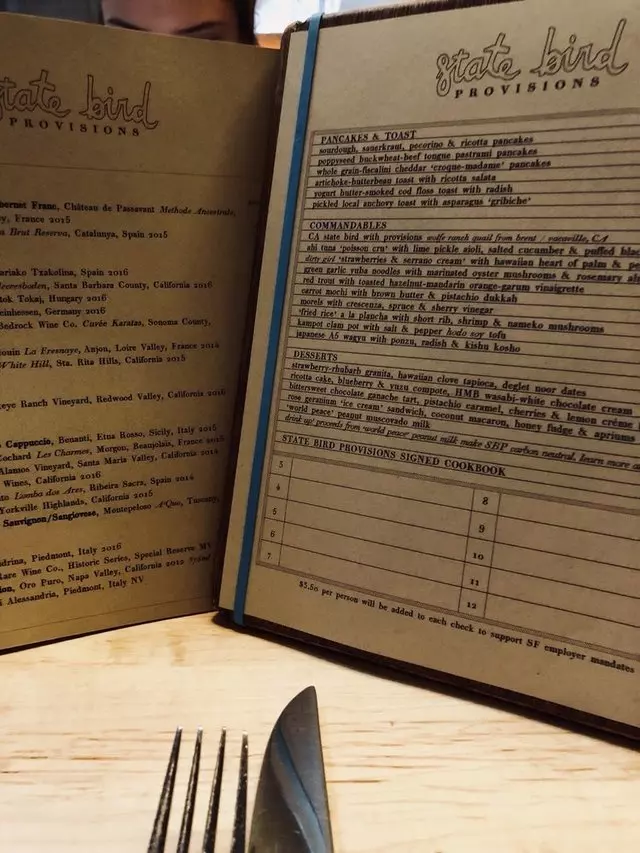 state bird
PROVISIONS
Cabernet Franc, Château de Passavant Methode Ancestrale,
France 2015
Brut Reserva, Catalunya, Spain 2015
Tzakolina, Spain 2016
Santa Barbara County, California 2016
Tokaj, Hungary 2016
Germany 2016
Bedrock Wine Co. Cuvée Karatas, Sonoma County,
La Fresnaye, Anjou, Loire Valley, France 2014
White Hill, Sta. Rita Hills, California 2015
Ranch Vineyard, Redwood Valley, California 2016
Cappuccio, Benanti, Etna Rosso, Sicily, Italy 2015
Les Charmes, Morgon, Beaujolais, France
Alamos Vineyard, Santa Maria Valley, California 2014
Wines, California 2016
Lomba dos Ares, Ribeira Sacra, Spain 2014
Yorkville Highlands, California 2015
Sauvignon/Sangiovese, Montepeloso A Quo, Tuscany,
Piedmont, Italy 2016
Rare Wine Co., Historic Series, Special Reserve
Oro Puro, Napa Valley, California
Alessandria, Piedmont, Italy NV
state bird
PROVISIONS
PANCAKES & TOAST
sourdough, sauerkraut, pecorino & ricotta pancakes
poppyseed buckwheat-beef tongue pastrami pancakes
whole grain-fiscalini cheddar 'croque-madame' pancakes
artichoke-butterbean toast with ricotta salata
yogurt butter-smoked cod floss toast with radish
pickled local anchovy toast with asparagus 'gribiche'
COMMANDABLES
CA state bird with provisions wolfe ranch quail from brent / vacaville, CA
ahi tuna 'poisson cru' with lime pickle aioli, salted cucumber & puffed
dirty girl 'strawberries & serrano cream' with hawaiian heart of palm &
green garlic yuba noodles with marinated oyster mushrooms & rosemary
red trout with toasted hazelnut-mandarin orange-garum vinaigrette
carrot mochi with brown butter & pistachio dukkah
morels with crescenza, spruce & sherry vinegar
'fried rice' a la plancha with short rib, shrimp & nameko mushrooms
kampot clam pot with salt & pepper hodo soy tofu
japanese A5 wagyu with ponzu, radish & kishu kosho
DESSERTS
strawberry-rhubarb granita, hawaiian clove tapioca, deglet noor dates
ricotta cake, blueberry & yuzu compote, HMB wasabi-white chocolate cream
bittersweet chocolate ganache tart, pistachio caramel, cherries & lemon crème
rose geranium 'ice cream' sandwich, coconut macaron, honey fudge & apriums
'world peace' peanut muscovado milk
drink up! proceeds from 'world peace' peanut milk make SBP carbon neutral, learn more
STATE BIRD PROVISIONS SIGNED COOKBOOK
3
4 8
5 9
6 10
7 11
12
$3.50 per person will be added to each check to support SF employer mandates